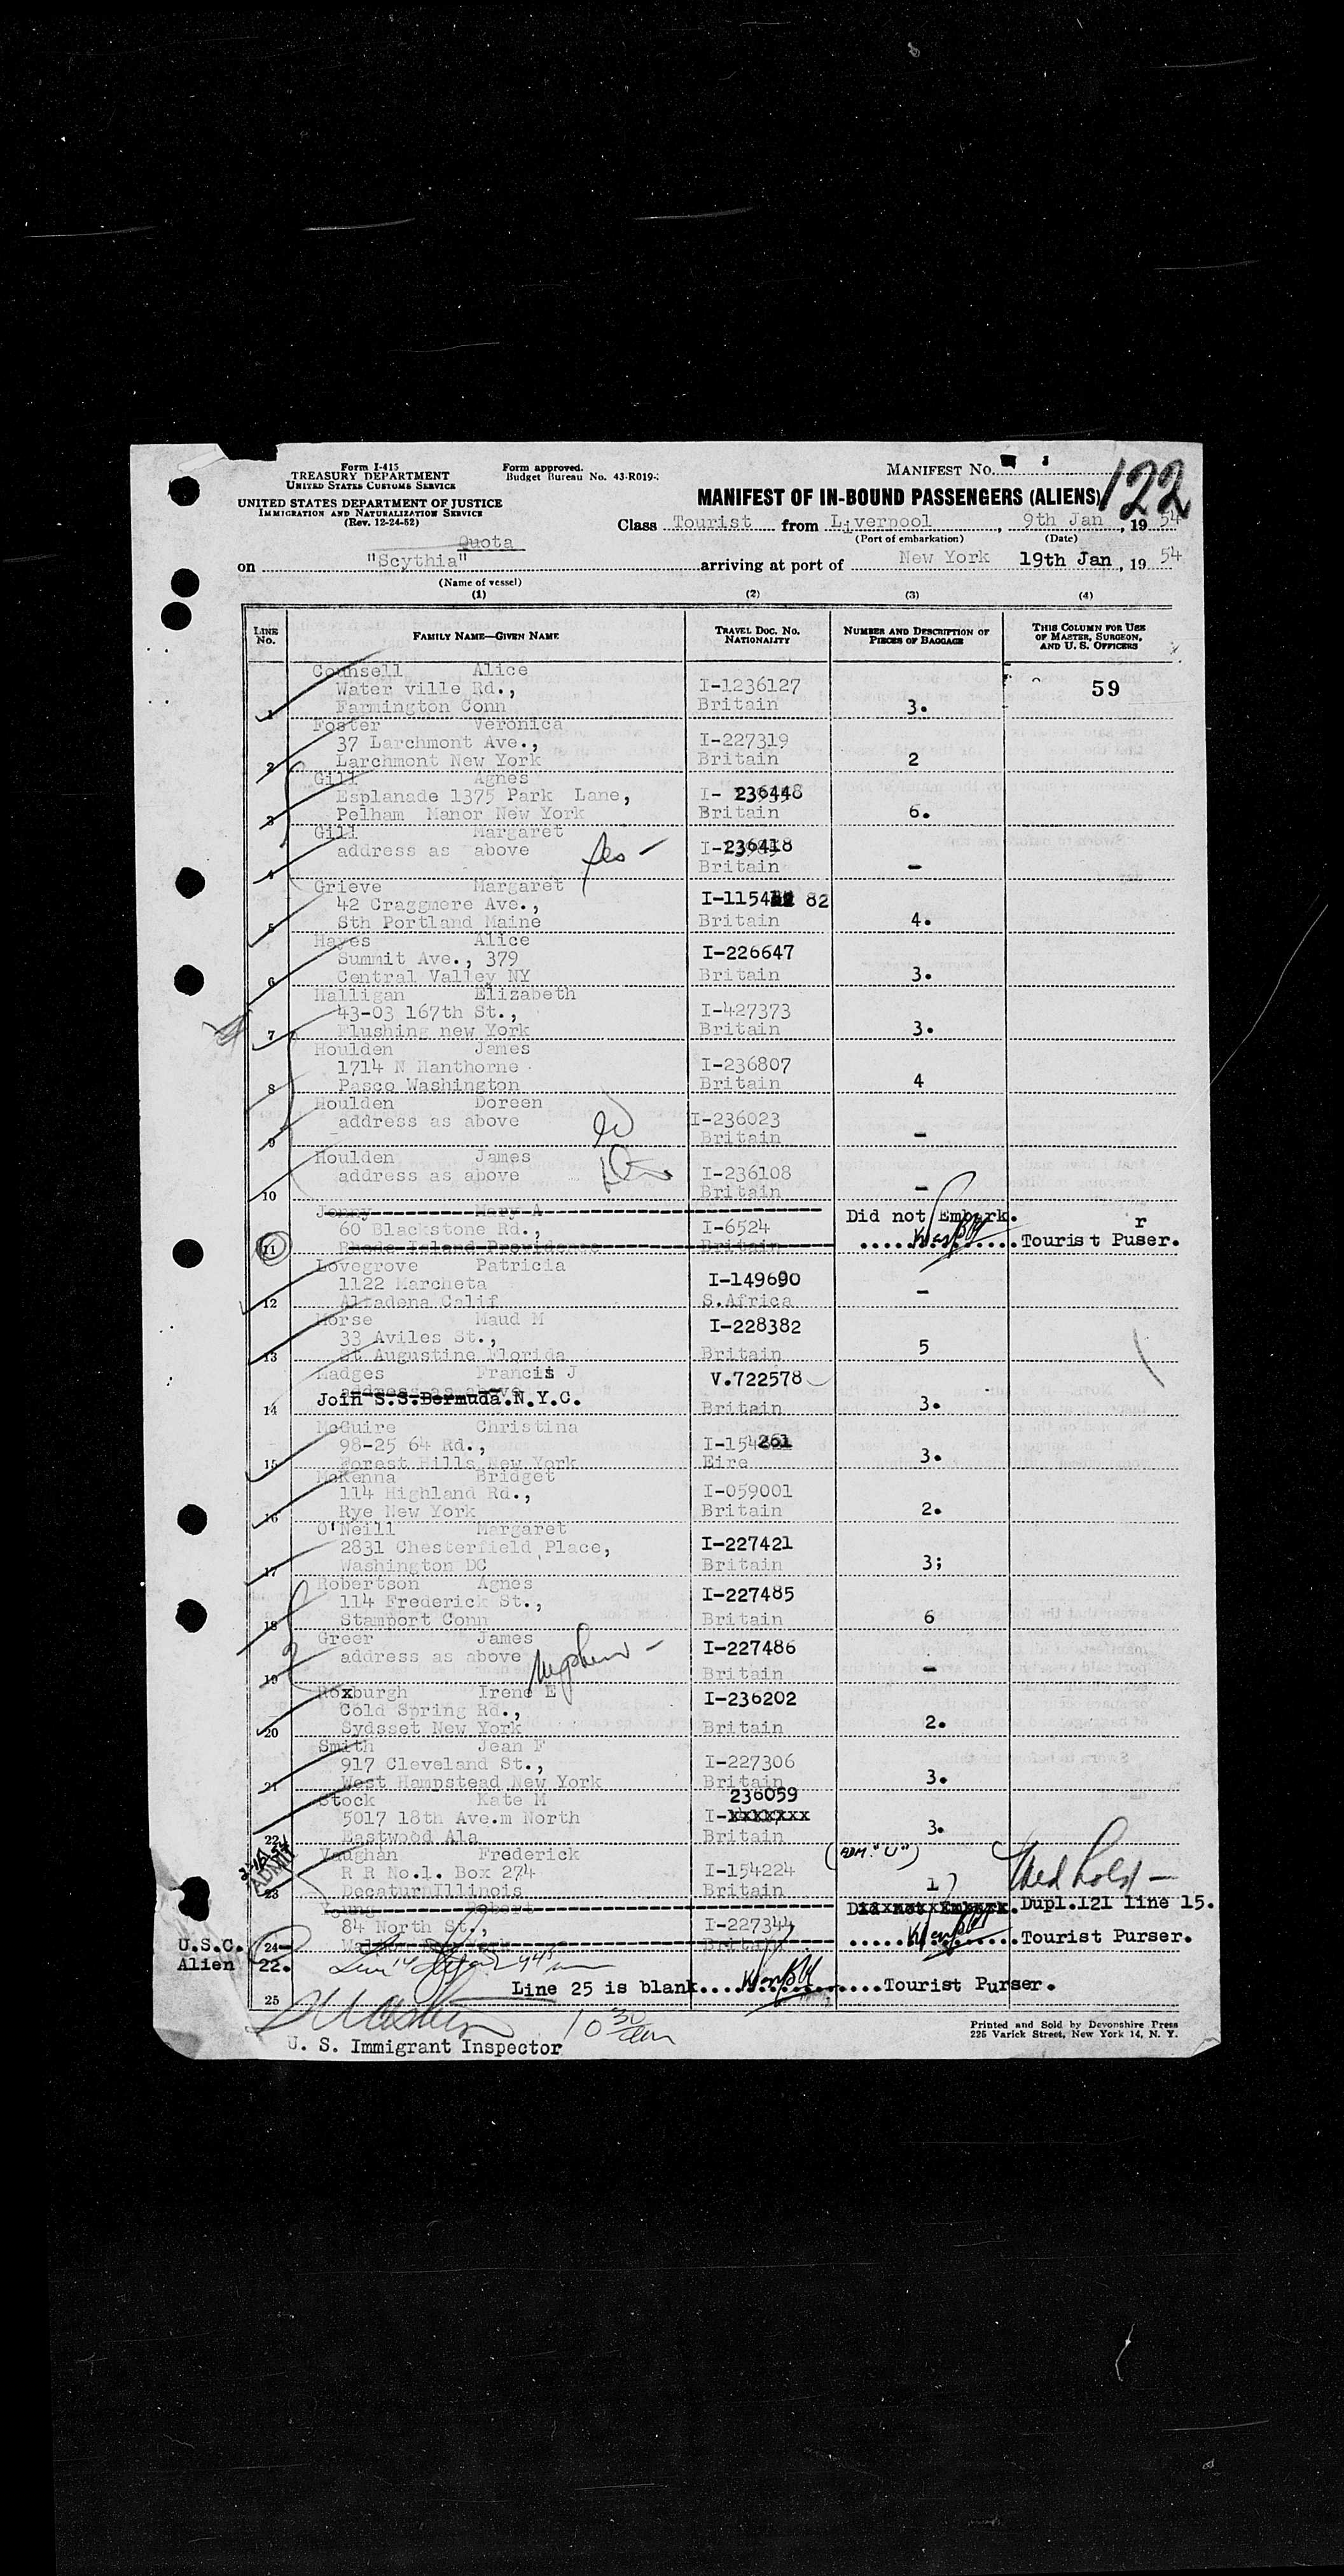 Form I-415
TREASURY DEPARTMENT
UNITED STATES CUSTOMS SERVICE
UNITED STATES DEPARTMENT OF JUSTICE
IMMIGRATION AND NATURALIZATION SERVICE
(Rev. 12-24-52)
Form approved.
Budget Bureau No. 43-R019-
MANIFEST No.
122
MANIFEST OF IN-BOUND PASSENGERS (ALIENS)
Class Tourist from Liverpool, 9th Jan, 1954
(Port of embarkation) (Date)
Quota
on "Scythia" arriving at port of New York 19th Jan, 1954
(Name of vessel)
(1) (2) (3) (4)
LINE No. FAMILY NAME—GIVEN NAME TRAVEL DOC. No. NATIONALITY NUMBER AND DESCRIPTION OF PIECES OF BAGGAGE THIS COLUMN FOR USE OF MASTER, SURGEON, AND U. S. OFFICERS
Counsell Alice
Water ville Rd., I-1236127 59
1 Farmington Conn Britain 3.
Foster Veronica
37 Larchmont Ave., I-227319
2 Larchmont New York Britain 2
Gill Agnes
Esplanade 1375 Park Lane, I- 236448
3 Pelham Manor New York Britain 6.
Gill Margaret
address as above I-236418
4 Britain -
Grieve Margaret
42 Craggmere Ave., I-1154 82
5 Sth Portland Maine Britain 4.
Hayes Alice
Summit Ave., 379 I-226647
6 Central Valley NY Britain 3.
Halligan Elizabeth
43-03 167th St., I-427373
7 Flushing new York Britain 3.
Houlden James
1714 N Hanthorne I-236807
8 Pasco Washington Britain 4
Houlden Doreen
address as above I-236023
9 Britain -
Houlden James
address as above I-236108
10 Britain -
Mary A Did not Embark.
60 Blackstone Rd., I-6524 r
11 Rhode Island Providence Britain Tourist Puser.
Lovegrove Patricia
1122 Marcheta I-149690
12 Altadena Calif S.Africa -
Morse Maud M
33 Aviles St., I-228382
13 St Augustine Florida Britain 5
Madges Francis J V.722578
address as above
14 Join S.S.Bermuda.N.Y.C. Britain 3.
McGuire Christina
98-25 64 Rd., I-154261
15 Forest Hills New York Eire 3.
McKenna Bridget
114 Highland Rd., I-059001
16 Rye New York Britain 2.
O'Neill Margaret
2831 Chesterfield Place, I-227421
17 Washington DC Britain 3;
Robertson Agnes
114 Frederick St., I-227485
18 Stamport Conn Britain 6
Greer James
address as above nephew - I-227486
19 Britain -
Roxburgh Irene E
Cold Spring Rd., I-236202
20 Sydsset New York Britain 2.
Smith Jean F
917 Cleveland St., I-227306
21 West Hampstead New York Britain 3.
Stock Kate M 236059
5017 18th Ave.m North I-xxxxxxx
22 Eastwood Ala Britain 3.
Vaughan Frederick (ADM. "U")
ADMIT R R No.1. Box 274 I-154224 Med hold -
23 DecaturnIllinois Britain 1
Young Robert Did not Embark. Dupl.121 line 15.
84 North St., I-227344
U.S.C. 24- Britain Tourist Purser.
Alien 22.
Line 25 is blank. Tourist Purser.
25
10 30 am
U. S. Immigrant Inspector
Printed and Sold by Devonshire Press
225 Varick Street, New York 14, N. Y.